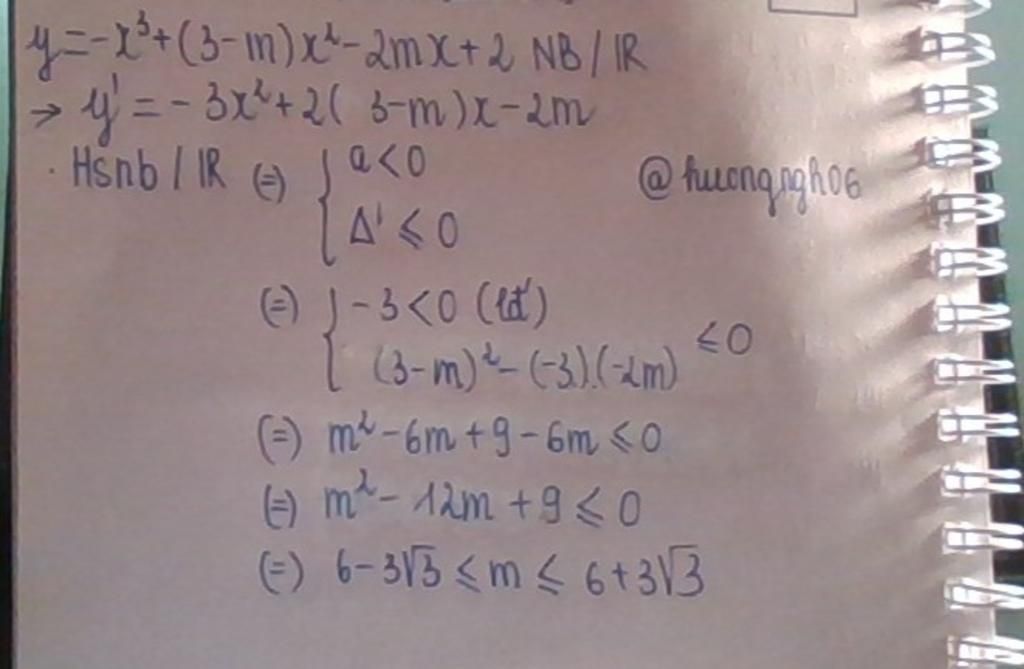 y = -x³ + (3-m)x² - 2mx + 2 NB / IR
→ y' = - 3x² + 2( 3-m)x - 2m
. Hsnb / IR (=) { a < 0
Δ' ⩽ 0
@huongngh06
(=) { - 3 < 0 (lđ)
(3-m)² - (-3).(-2m) ⩽ 0
(=) m² - 6m + 9 - 6m ⩽ 0
(=) m² - 12m + 9 ⩽ 0
(=) 6 - 3√3 ⩽ m ⩽ 6 + 3√3